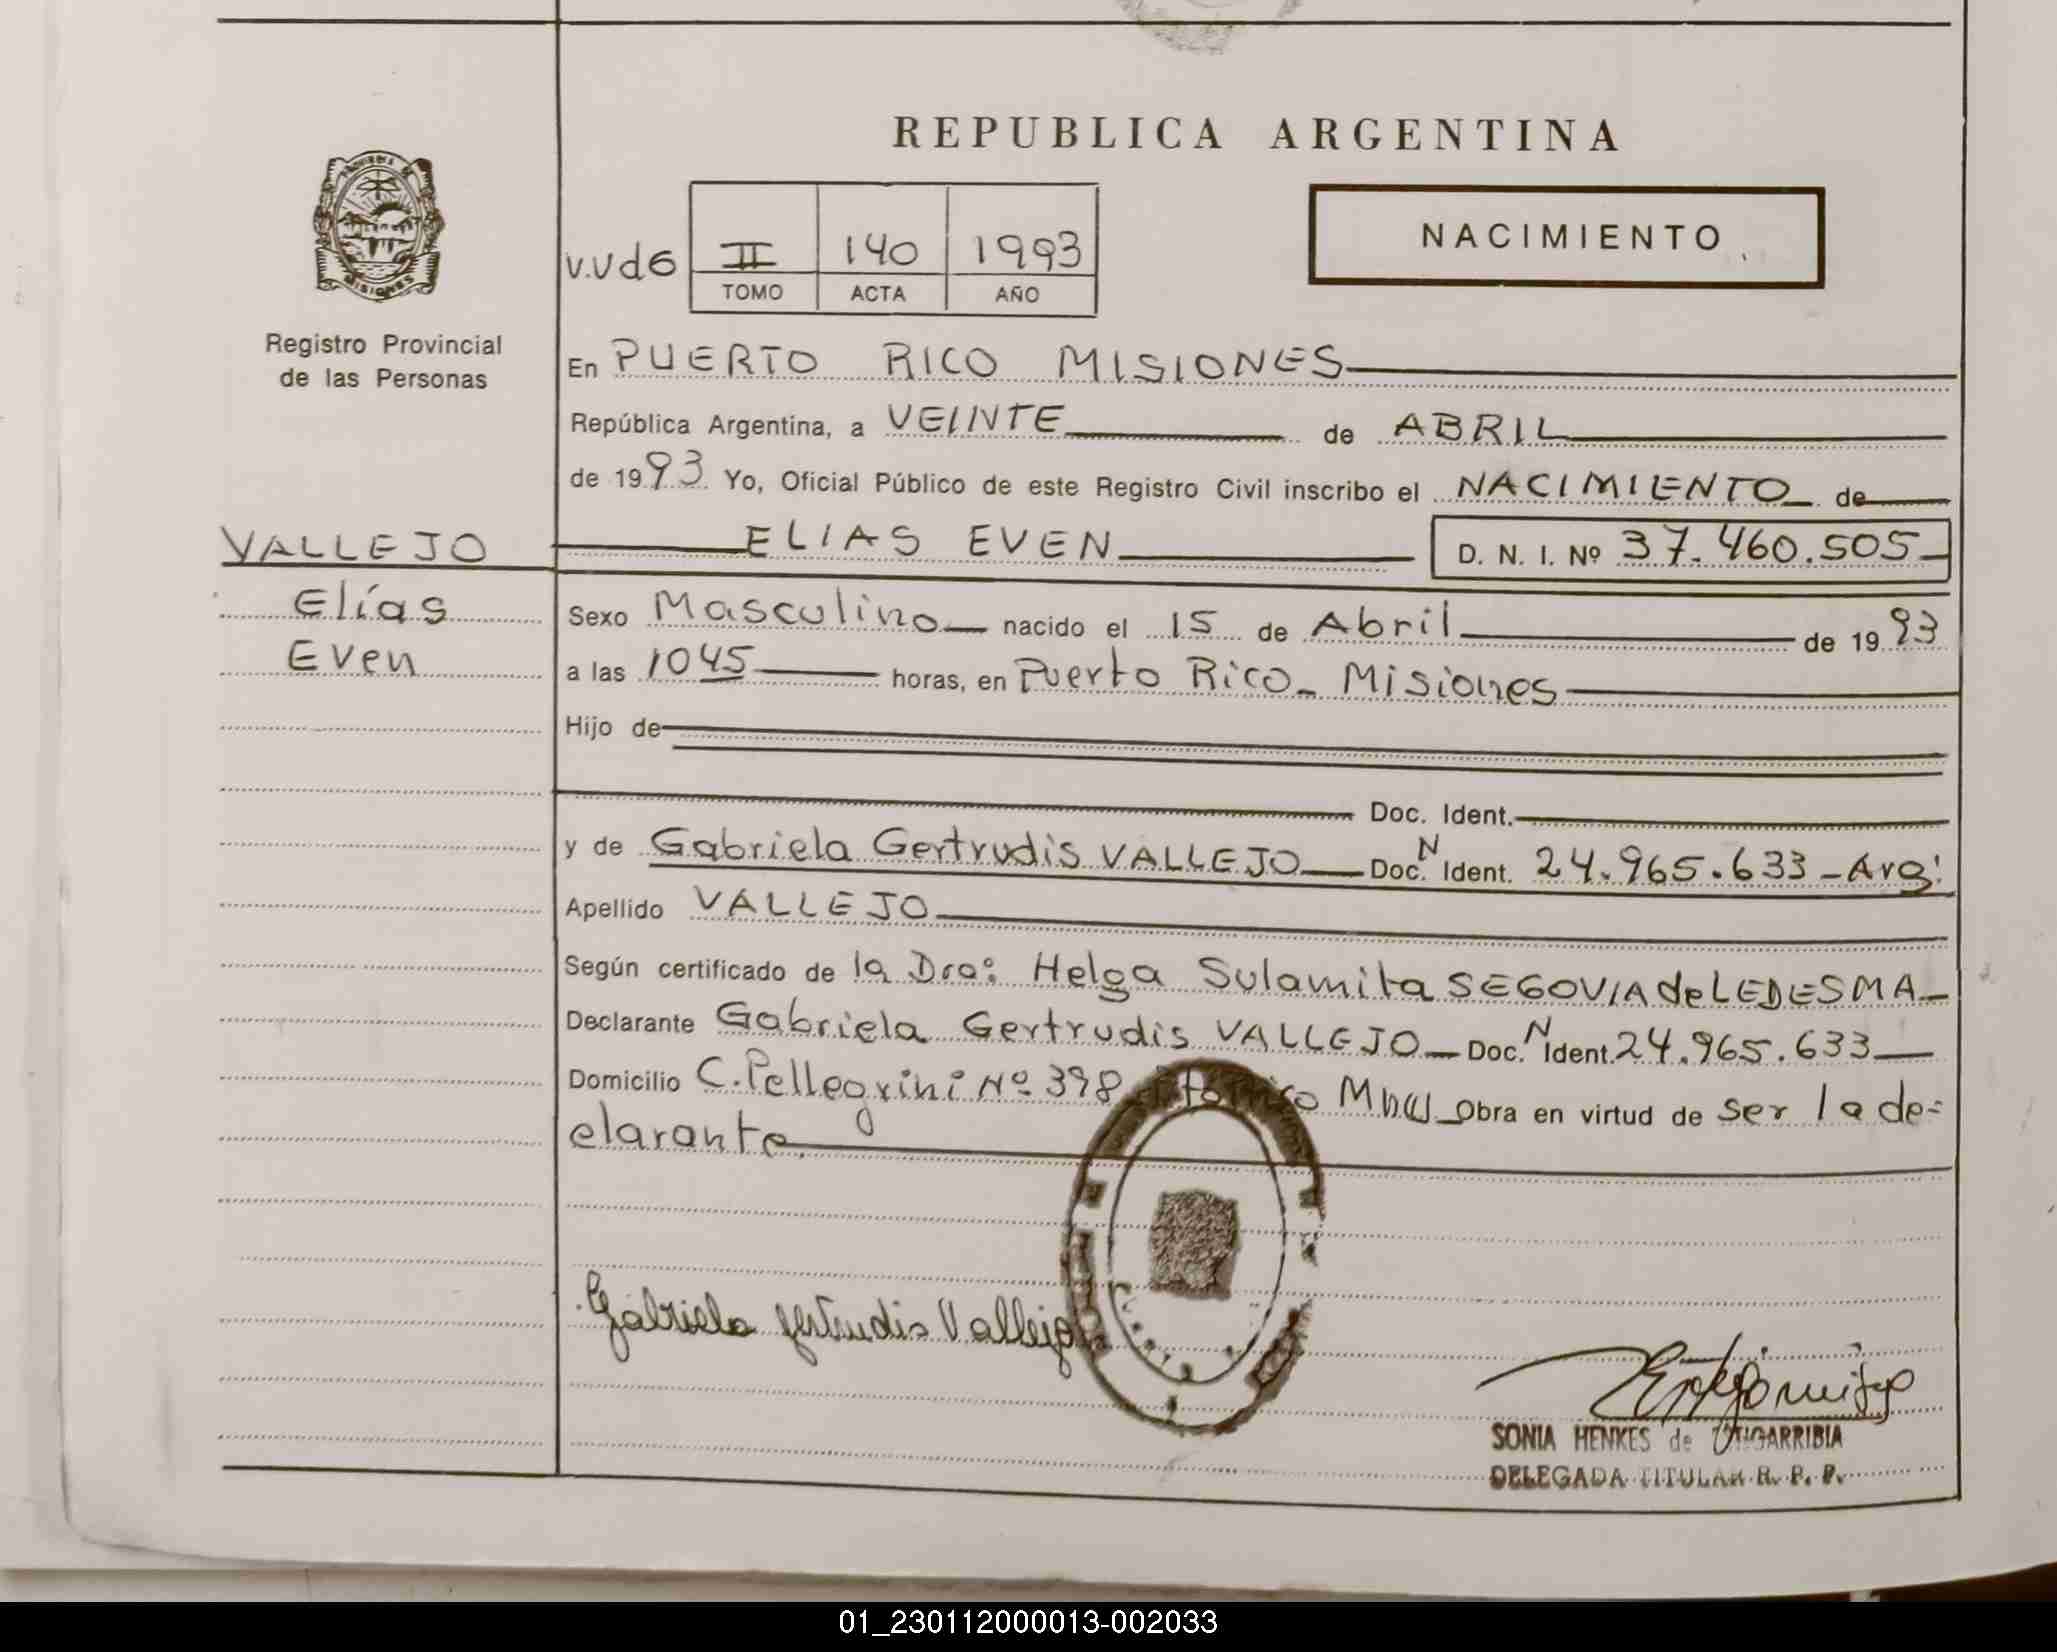 REPUBLICA ARGENTINA
NACIMIENTO
V.V d6 II 140 1993
TOMO ACTA AÑO
PROVINCIA
MISIONES
Registro Provincial
de las Personas
En PUERTO RICO MISIONES
República Argentina, a VEINTE de ABRIL
de 1993 Yo, Oficial Público de este Registro Civil inscribo el NACIMIENTO de
VALLEJO
ELIAS EVEN D. N. I. Nº 37.460.505
Elías
Even
Sexo Masculino nacido el 15 de Abril de 1993
a las 1045 horas, en Puerto Rico - Misiones
Hijo de
Doc. Ident.
y de Gabriela Gertrudis VALLEJO Doc. N Ident. 24.965.633 - Arg.
Apellido VALLEJO
Según certificado de la Dra: Helga Sulamita SEGOVIA de LEDESMA
Declarante Gabriela Gertrudis VALLEJO Doc. N Ident. 24.965.633
Domicilio C. Pellegrini Nº 398 Rico Mnes Obra en virtud de ser la de=
clarante.
Gabriela Gertrudis Vallejo
SONIA HENKES de
DELEGADA TITULAR R. P. P.
01_230112000013-002033